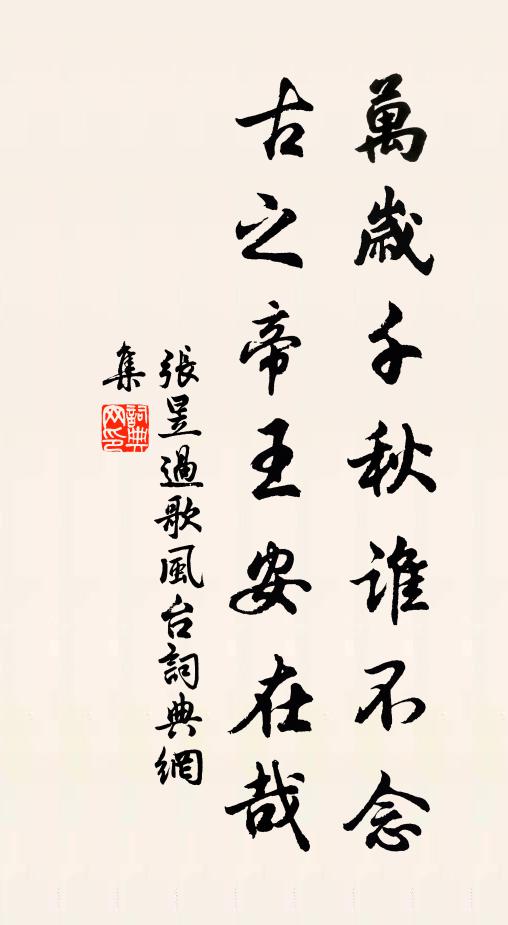 萬歲千秋誰不念
古之帝王安在哉
張昱過歌風台詞典網
集
詞典网印